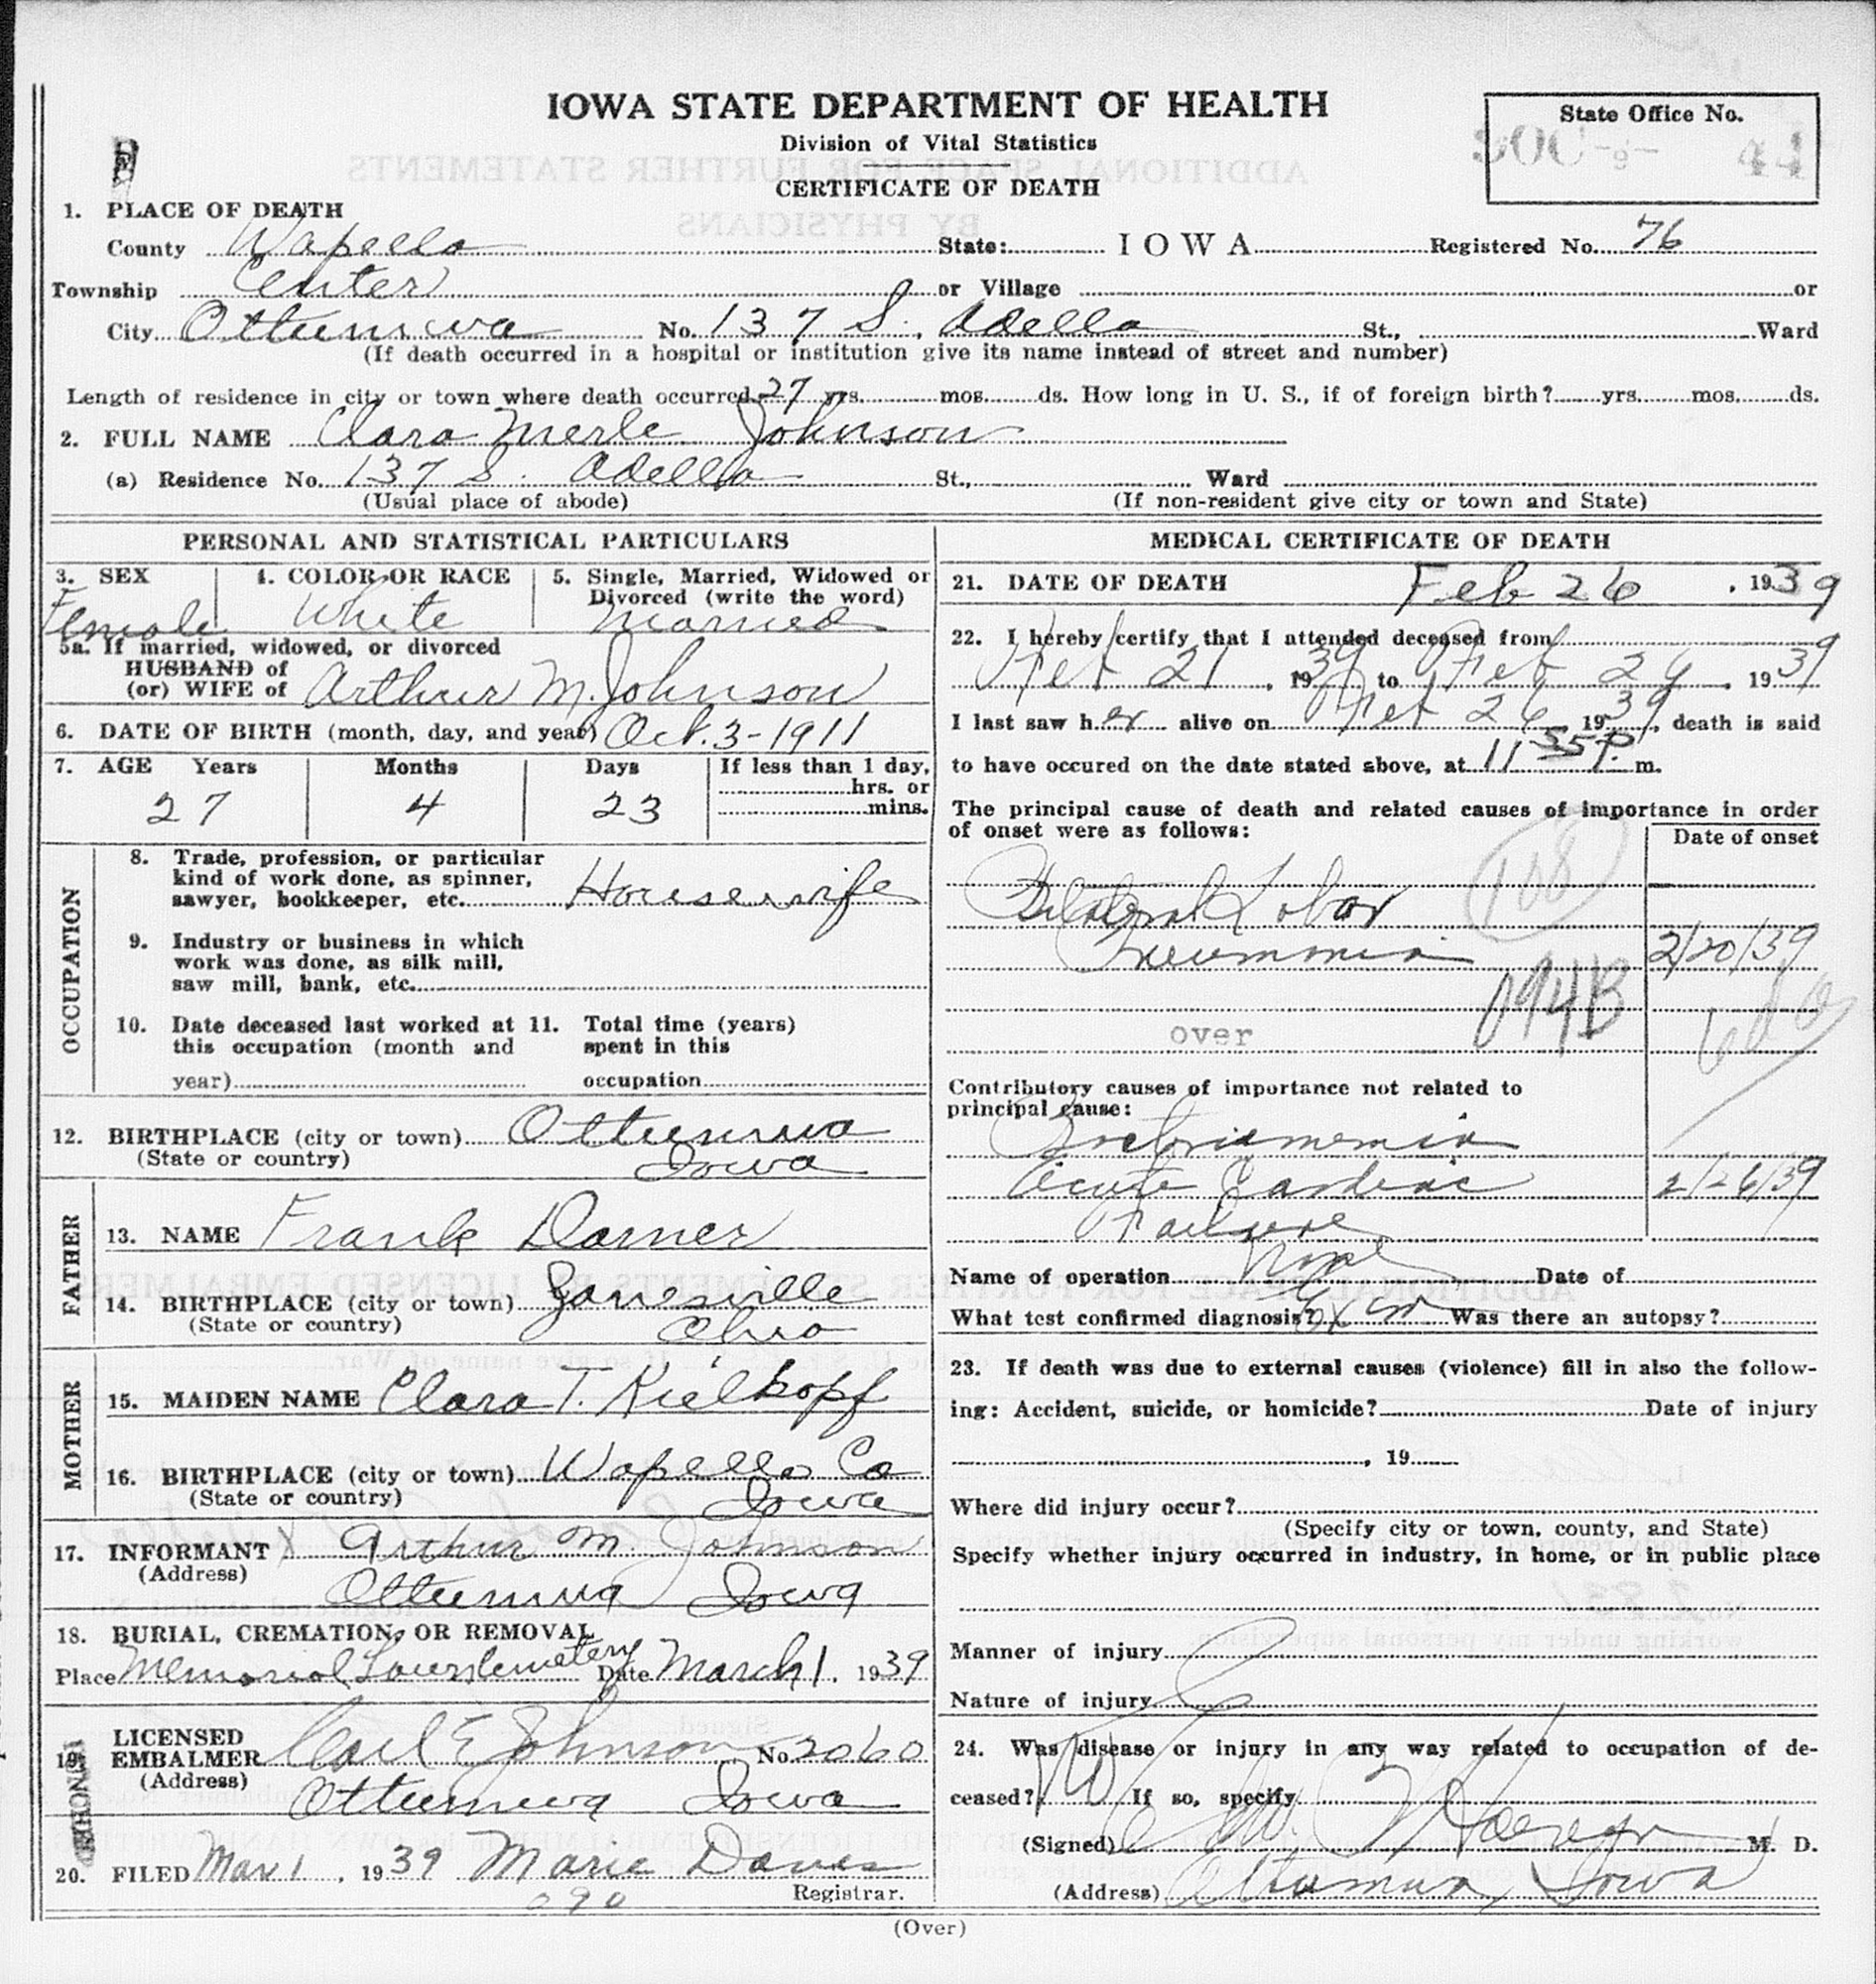 IOWA STATE DEPARTMENT OF HEALTH
Division of Vital Statistics
CERTIFICATE OF DEATH
State Office No.
44
1. PLACE OF DEATH
County Wapello State: IOWA Registered No. 76
Township Center or Village or
City Ottumwa No. 137 S. Adella St., Ward
(If death occurred in a hospital or institution give its name instead of street and number)
Length of residence in city or town where death occurred 27 yrs. mos. ds. How long in U. S., if of foreign birth? yrs. mos. ds.
2. FULL NAME Clara Merle Johnson
(a) Residence No. 137 S. Adella St., Ward
(Usual place of abode) (If non-resident give city or town and State)
PERSONAL AND STATISTICAL PARTICULARS
3. SEX 4. COLOR OR RACE 5. Single, Married, Widowed or
Divorced (write the word)
Female White Married
5a. If married, widowed, or divorced
HUSBAND of
(or) WIFE of Arthur M. Johnson
6. DATE OF BIRTH (month, day, and year) Oct. 3-1911
7. AGE Years Months Days If less than 1 day,
hrs. or
27 4 23 mins.
OCCUPATION
8. Trade, profession, or particular
kind of work done, as spinner,
sawyer, bookkeeper, etc. Housewife
9. Industry or business in which
work was done, as silk mill,
saw mill, bank, etc.
10. Date deceased last worked at 11. Total time (years)
this occupation (month and spent in this
year) occupation
12. BIRTHPLACE (city or town) Ottumwa
(State or country) Iowa
FATHER
13. NAME Frank Darner
14. BIRTHPLACE (city or town) Zanesville
(State or country) Ohio
MOTHER
15. MAIDEN NAME Clara T. Kielkopf
16. BIRTHPLACE (city or town) Wapello Co
(State or country) Iowa
17. INFORMANT X Arthur M. Johnson
(Address) Ottumwa Iowa
18. BURIAL, CREMATION, OR REMOVAL
Place Memorial Lawn Cemetery Date March 1, 1939
19. LICENSED
EMBALMER Carl E Johnson No. 2060
(Address) Ottumwa Iowa
20. FILED Mar 1, 1939 Marie Daves
090 Registrar.
MEDICAL CERTIFICATE OF DEATH
21. DATE OF DEATH Feb 26, 1939
22. I hereby certify that I attended deceased from
Feb 21, 1939 to Feb 26, 1939
I last saw her alive on Feb 26 1939, death is said
to have occured on the date stated above, at 11 55 P. m.
The principal cause of death and related causes of importance in order
of onset were as follows: Date of onset
108
Bilateral Lobar
Pneumonia 2/20/39
094B
over
Contributory causes of importance not related to
principal cause:
Acute Cardiac 2/26/39
Failure
Name of operation None Date of
What test confirmed diagnosis? Was there an autopsy?
23. If death was due to external causes (violence) fill in also the follow-
ing: Accident, suicide, or homicide? Date of injury
, 19
Where did injury occur?
(Specify city or town, county, and State)
Specify whether injury occurred in industry, in home, or in public place
Manner of injury
Nature of injury
24. Was disease or injury in any way related to occupation of de-
ceased? No If so, specify
(Signed) M. D.
(Address) Ottumwa, Iowa
(Over)